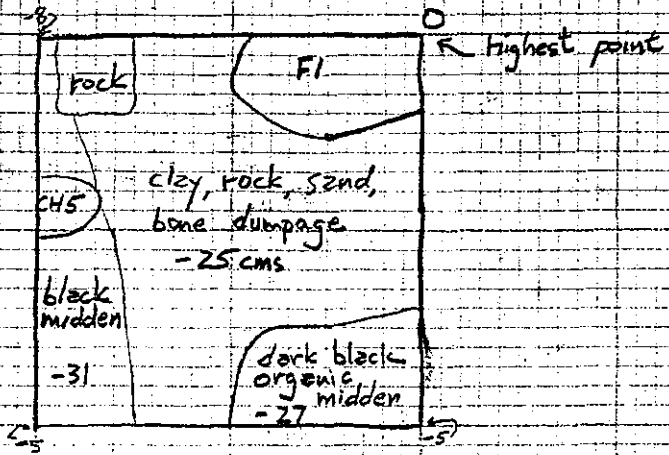 -8
0
← highest point
rock
F1
clay, rock, sand,
CH5
bone dumpage
-25 cms
black
midden
-31
dark black
organic
midden
-27
-5
-5